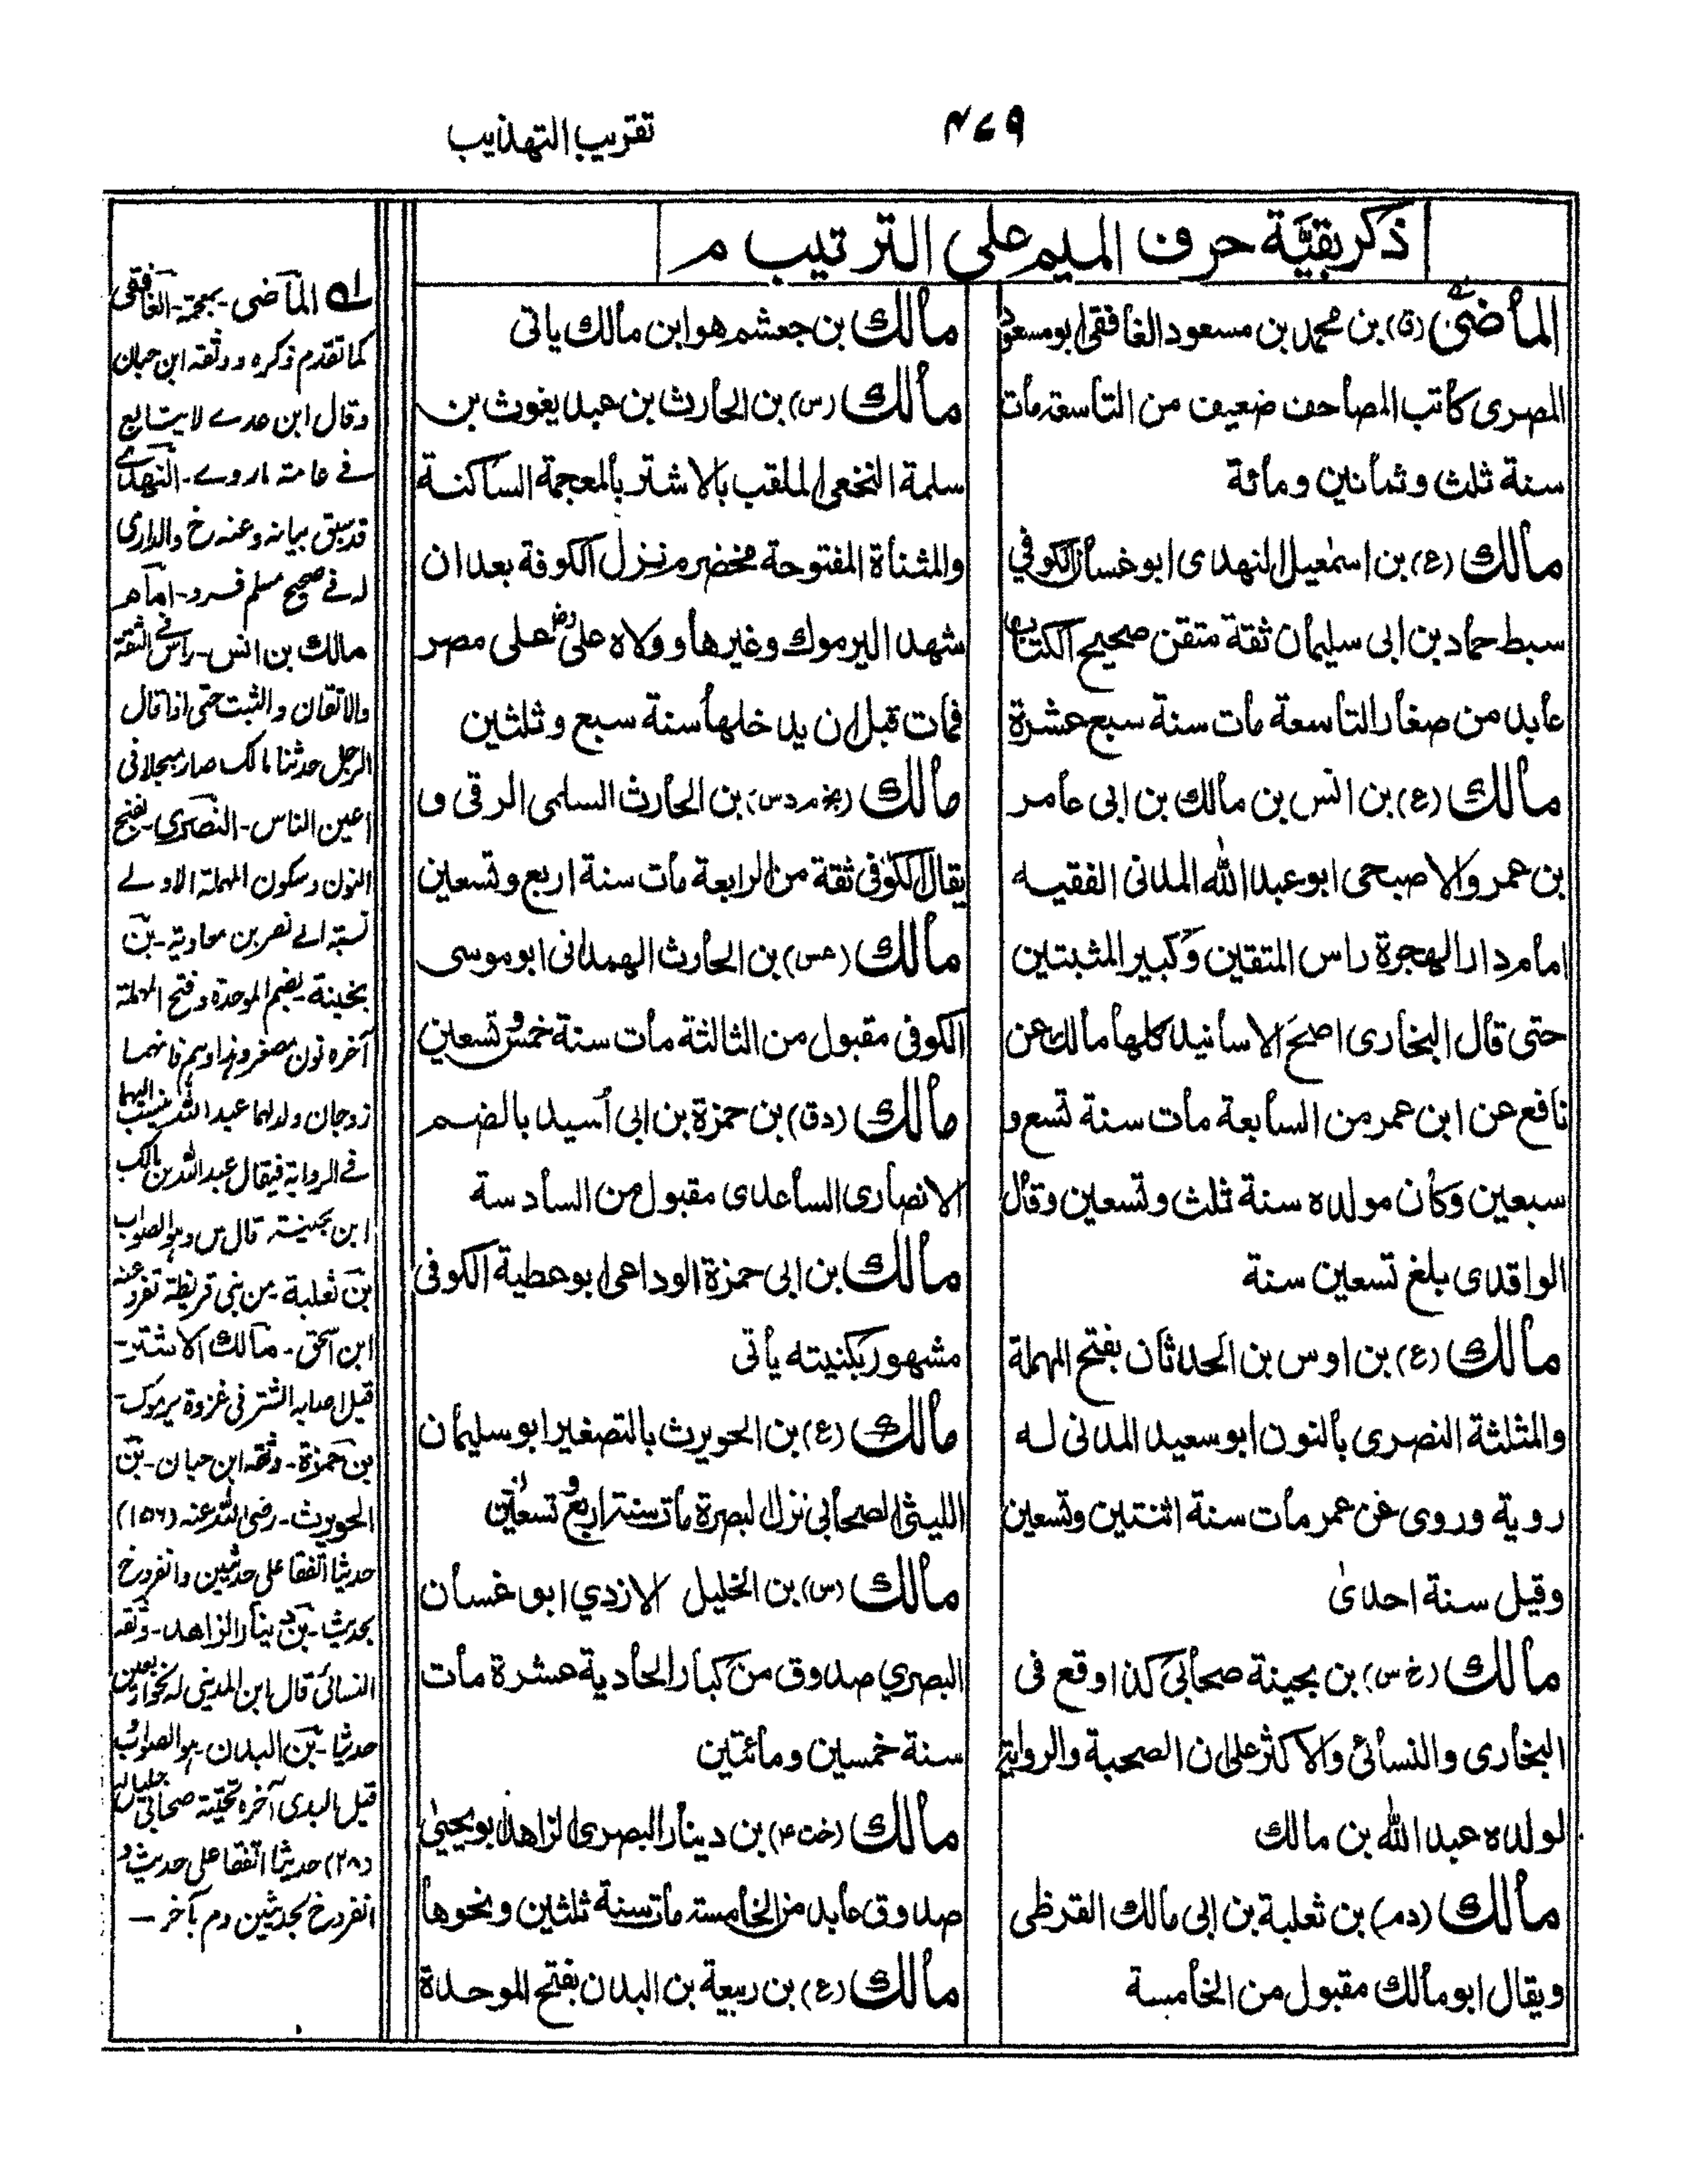 تقريب التهذيب
۴۷۹
ذكر بقيّة حرف الميم على الترتيب م
الماضى (ق) بن محمد بن مسعود الغافقى ابو مسعود
المصرى كاتب المصاحف ضعيف من التاسعة مات
سنة ثلث وثمانين ومائة
مالك (ع) بن اسمعيل النهدى ابو غسان الكوفي
سبط حماد بن ابى سليمان ثقة متقن صحيح الكتاب
عابد من صغار التاسعة مات سنة سبع عشرة
مالك (ع) بن انس بن مالك بن ابى عامر
بن عمرو الاصبحى ابو عبد الله المدنى الفقيه
امام دار الهجرة راس المتقين وكبير المثبتين
حتى قال البخارى اصح الاسانيد كلها مالك عن
نافع عن ابن عمر من السابعة مات سنة تسع و
سبعين وكان مولده سنة ثلث وتسعين وقال
الواقدى بلغ تسعين سنة
مالك (ع) بن اوس بن الحدثان بفتح المهملة
والمثلثة النصرى بالنون ابو سعيد المدنى له
روية وروى عن عمر مات سنة اثنتين وتسعين
وقيل سنة احدى
مالك (خ س) بن بحينة صحابى كذا وقع فى
البخارى والنسائى والاكثر على ان الصحبة والرواية
لولده عبد الله بن مالك
مالك (دم) بن ثعلبة بن ابى مالك القرظى
ويقال ابو مالك مقبول من الخامسة
مالك بن جعشم هو ابن مالك ياتى
مالك (س) بن الحارث بن عبد يغوث بن
سلمة النخعى الملقب بالاشتر بالمعجمة الساكنة
والمثناة المفتوحة مخضرم نزل الكوفة بعد ان
شهد اليرموك وغيرها وولاه على رض على مصر
فمات قبل ان يدخلها سنة سبع وثلثين
مالك (بخ م د س) بن الحارث السلمى الرقى و
يقال الكوفى ثقة من الرابعة مات سنة اربع وتسعين
مالك (عس) بن الحارث الهمدانى ابو موسى
الكوفى مقبول من الثالثة مات سنة خمس وتسعين
مالك (دق) بن حمزة بن ابى أسيد بالضم
الانصارى الساعدى مقبول من السادسة
مالك بن ابى حمزة الوداعى ابو عطية الكوفى
مشهور بكنيته يأتى
مالك (ع) بن الحويرث بالتصغير ابو سليمان
الليثى الصحابى نزل البصرة مات سنة اربع وتسعين
مالك (س) بن الخليل الازدي ابو غسان
البصري صدوق من كبار الحادية عشرة مات
سنة خمسين ومائتين
مالك (خت ۴) بن دينار البصرى الزاهد ابو يحيى
صدوق عابد من الخامسة مات سنة ثلثين ونحوها
مالك (ع) بن ربيعة بن البدن بفتح الموحدة
له الماضى - بمعجمة - الغافقى
كما تقدم ذكره ووثقه ابن حبان
وقال ابن عدے لا يتابع
فے عامته ما روے - النهدے
قد سبق بيانه وعنه خ والدارى
له فے صحيح مسلم فرد - امام
مالك بن انس - راس فى الثقة
والاتقان والثبت حتى اذا قال
الرجل حدثنا مالك صار مبجلا فى
اعين الناس - النصرى - بفتح
النون وسكون المهملة الاولے
نسبة الے نصر بن معاوية - بن
بحينة - بضم الموحدة وفتح المهملة
آخره نون مصغر وهذا وهم فانهما
زوجان ولدلهما عبد الله فينسب اليهما
فے الرواية فيقال عبد الله بن مالك
ابن بحينة قال س وهو الصواب
بن ثعلبة - من بنى قريظة تفرد عنه
ابن اسحق - مالك الاشتر -
قيل اصابه الشتر فى غزوة يرموك -
بن حمزة - وثقه ابن حبان - بن
الحويرث - رضى الله عنه (۱۵۶)
حديثا اتفقا على حديثين وانفرد خ
بحديث - بن دينار الزاهد - وثقه
النسائى قال ابن المدينى له نحو اربعين
حديثا - بن البدن - هو الصواب
قيل البدى آخره تحتية صحابى جليل له
(۲۸) حديثا اتفقا على حديث و
انفرد خ بحديثين وم بآخر -